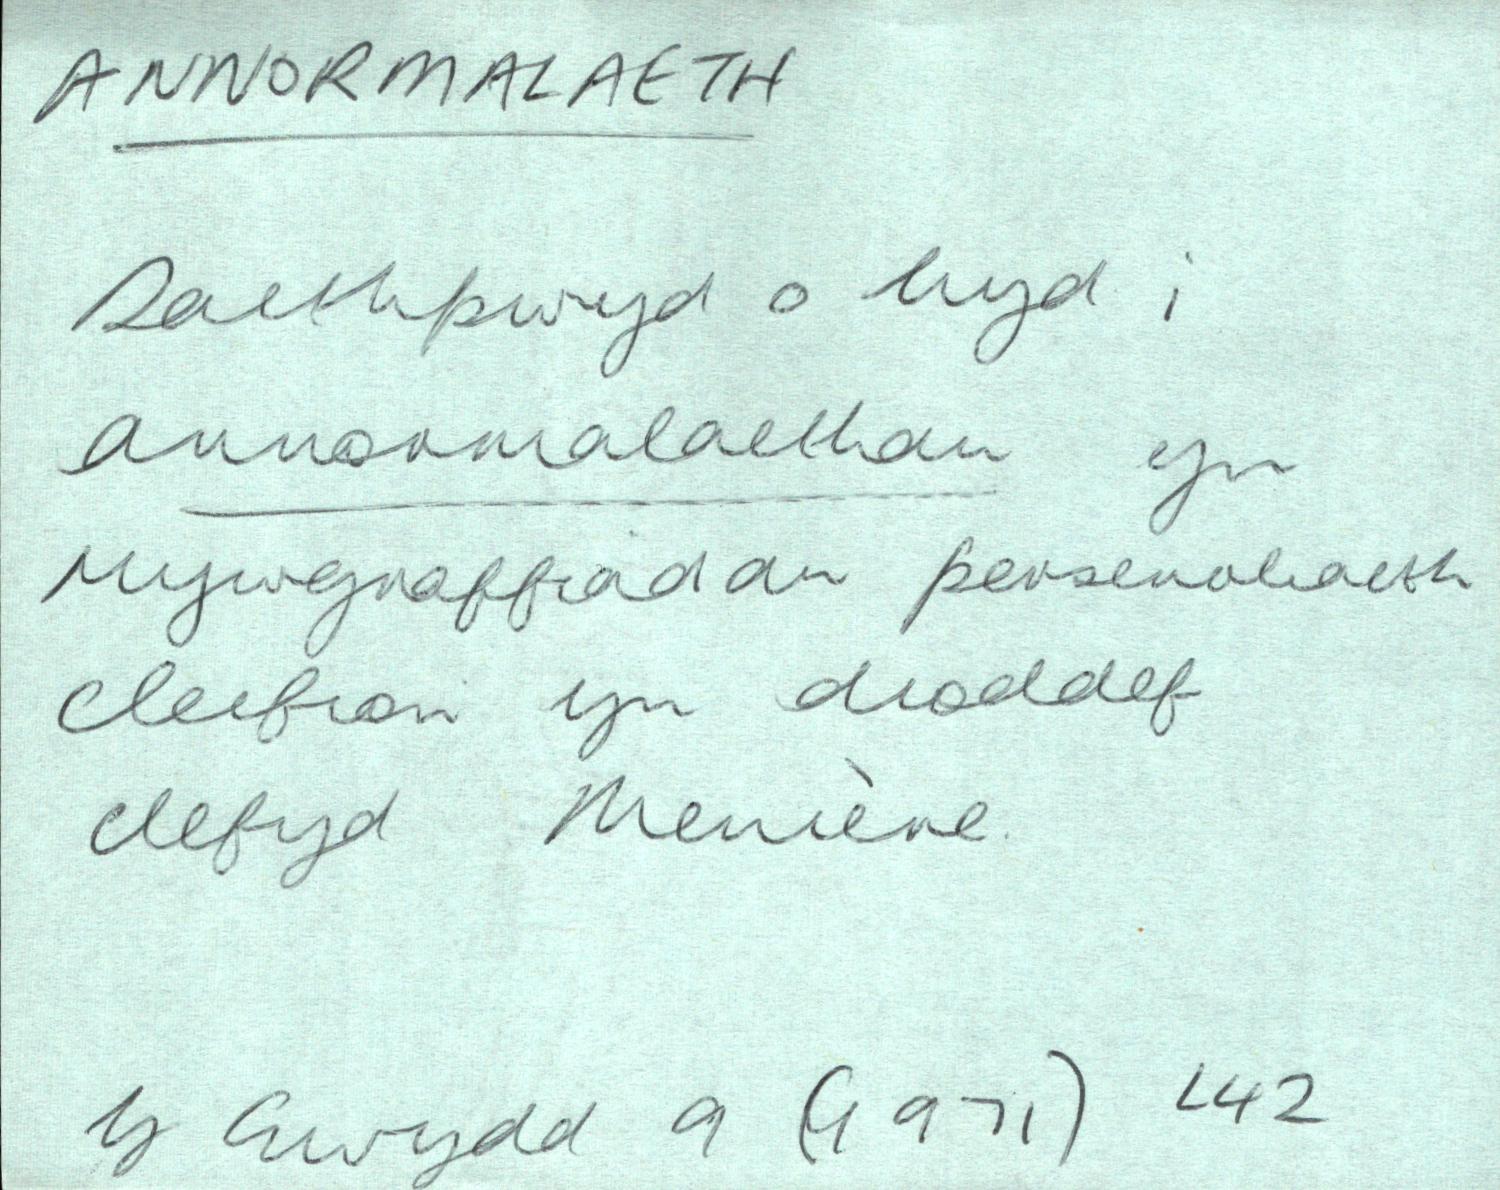 ANNORMALAETH
Daethpwyd o hyd i
annormalaethau yn
rhywgraffiadau personoliaeth
cleifion yn dioddef
clefyd Menière.
Y Gwydd 9 (1971) 142